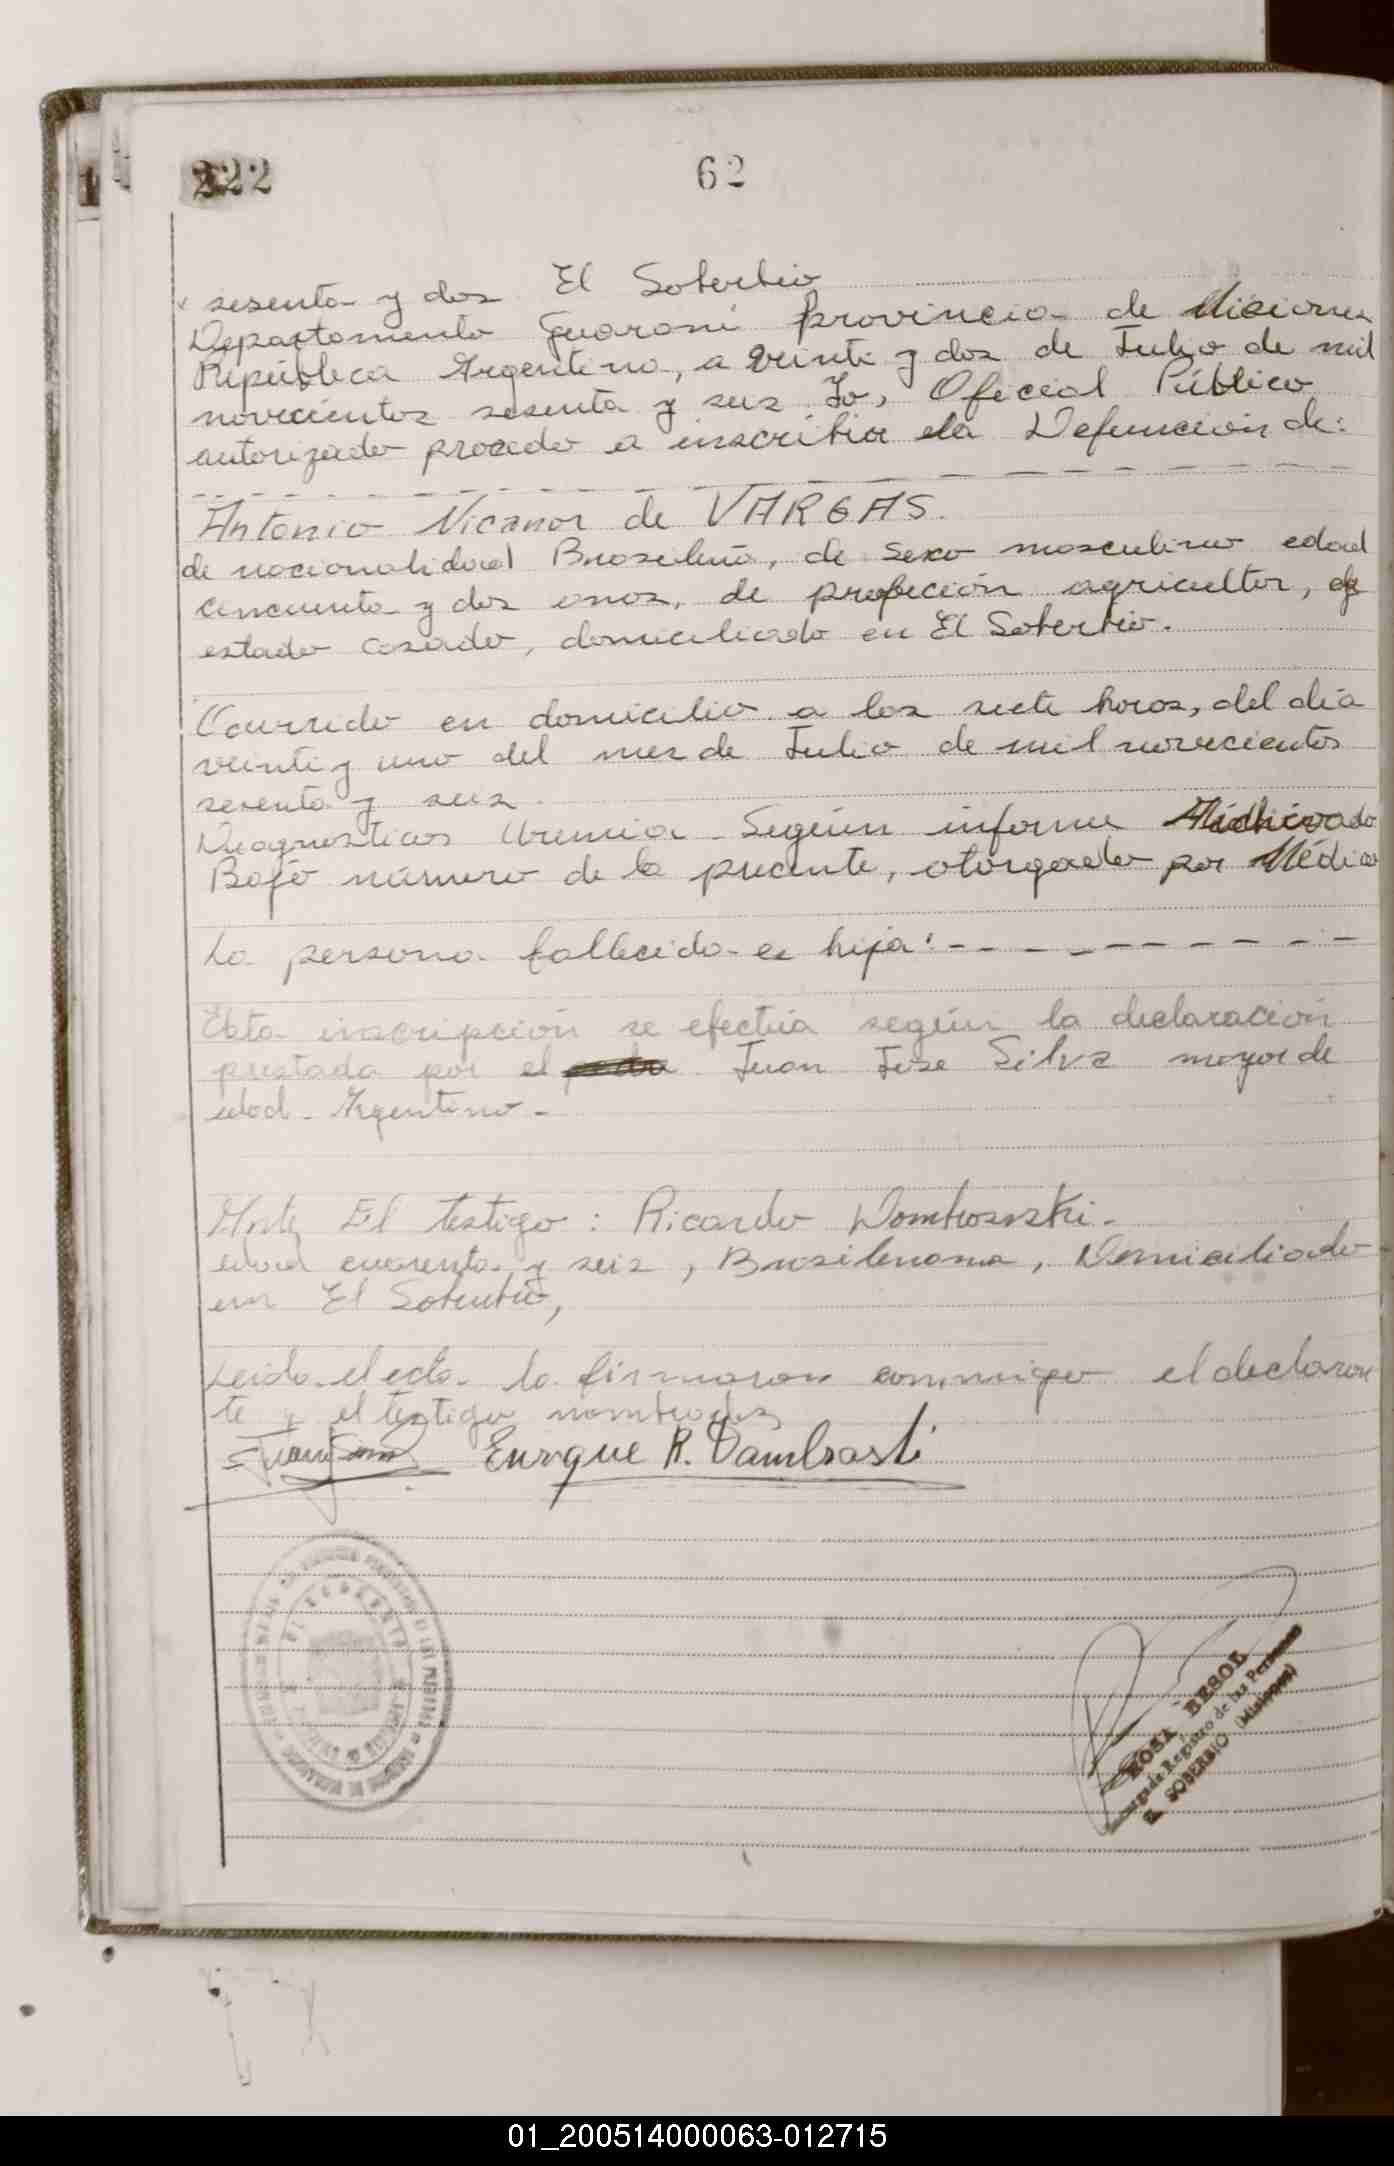 222
62
sesenta y dos El Soberbio
Departamento Guarani Provincia de Misiones
República Argentina, a veinte y dos de Julio de mil
novecientos sesenta y seis Yo, Oficial Público
autorizado procedo a inscribir la Defunción de:
Antonio Nicanor de VARGAS.
de nacionalidad Brasileña, de sexo masculino edad
cincuenta y dos anos, de profeción agricultor, de
estado casado, domiciliado en El Soberbio.
Ocurrido en domicilio a las siete horas, del día
veinte y uno del mes de Julio de mil novecientos
sesenta y seis.
Diagnosticos Uremia - Según informe
Bajo número de la presente, otorgado por Médico
La persona fallecida es hija: - - - - - - - - - -
Esta inscripción se efectúa según la declaración
prestada por el Juan Jose Silva mayor de
edad - Argentino -
Ante El testigo: Ricardo Dombrosski.
edad cuarenta y seis, , Domiciliado
en El Soberbio,
Leida el acta la firmaron conmigo el declaran
te y el testigo nombrados
Enrique R. Dambrasti
EL SOBERBIO
ROSA BESOL
Registro de las Personas
EL SOBERBIO (Misiones)
01_200514000063-012715